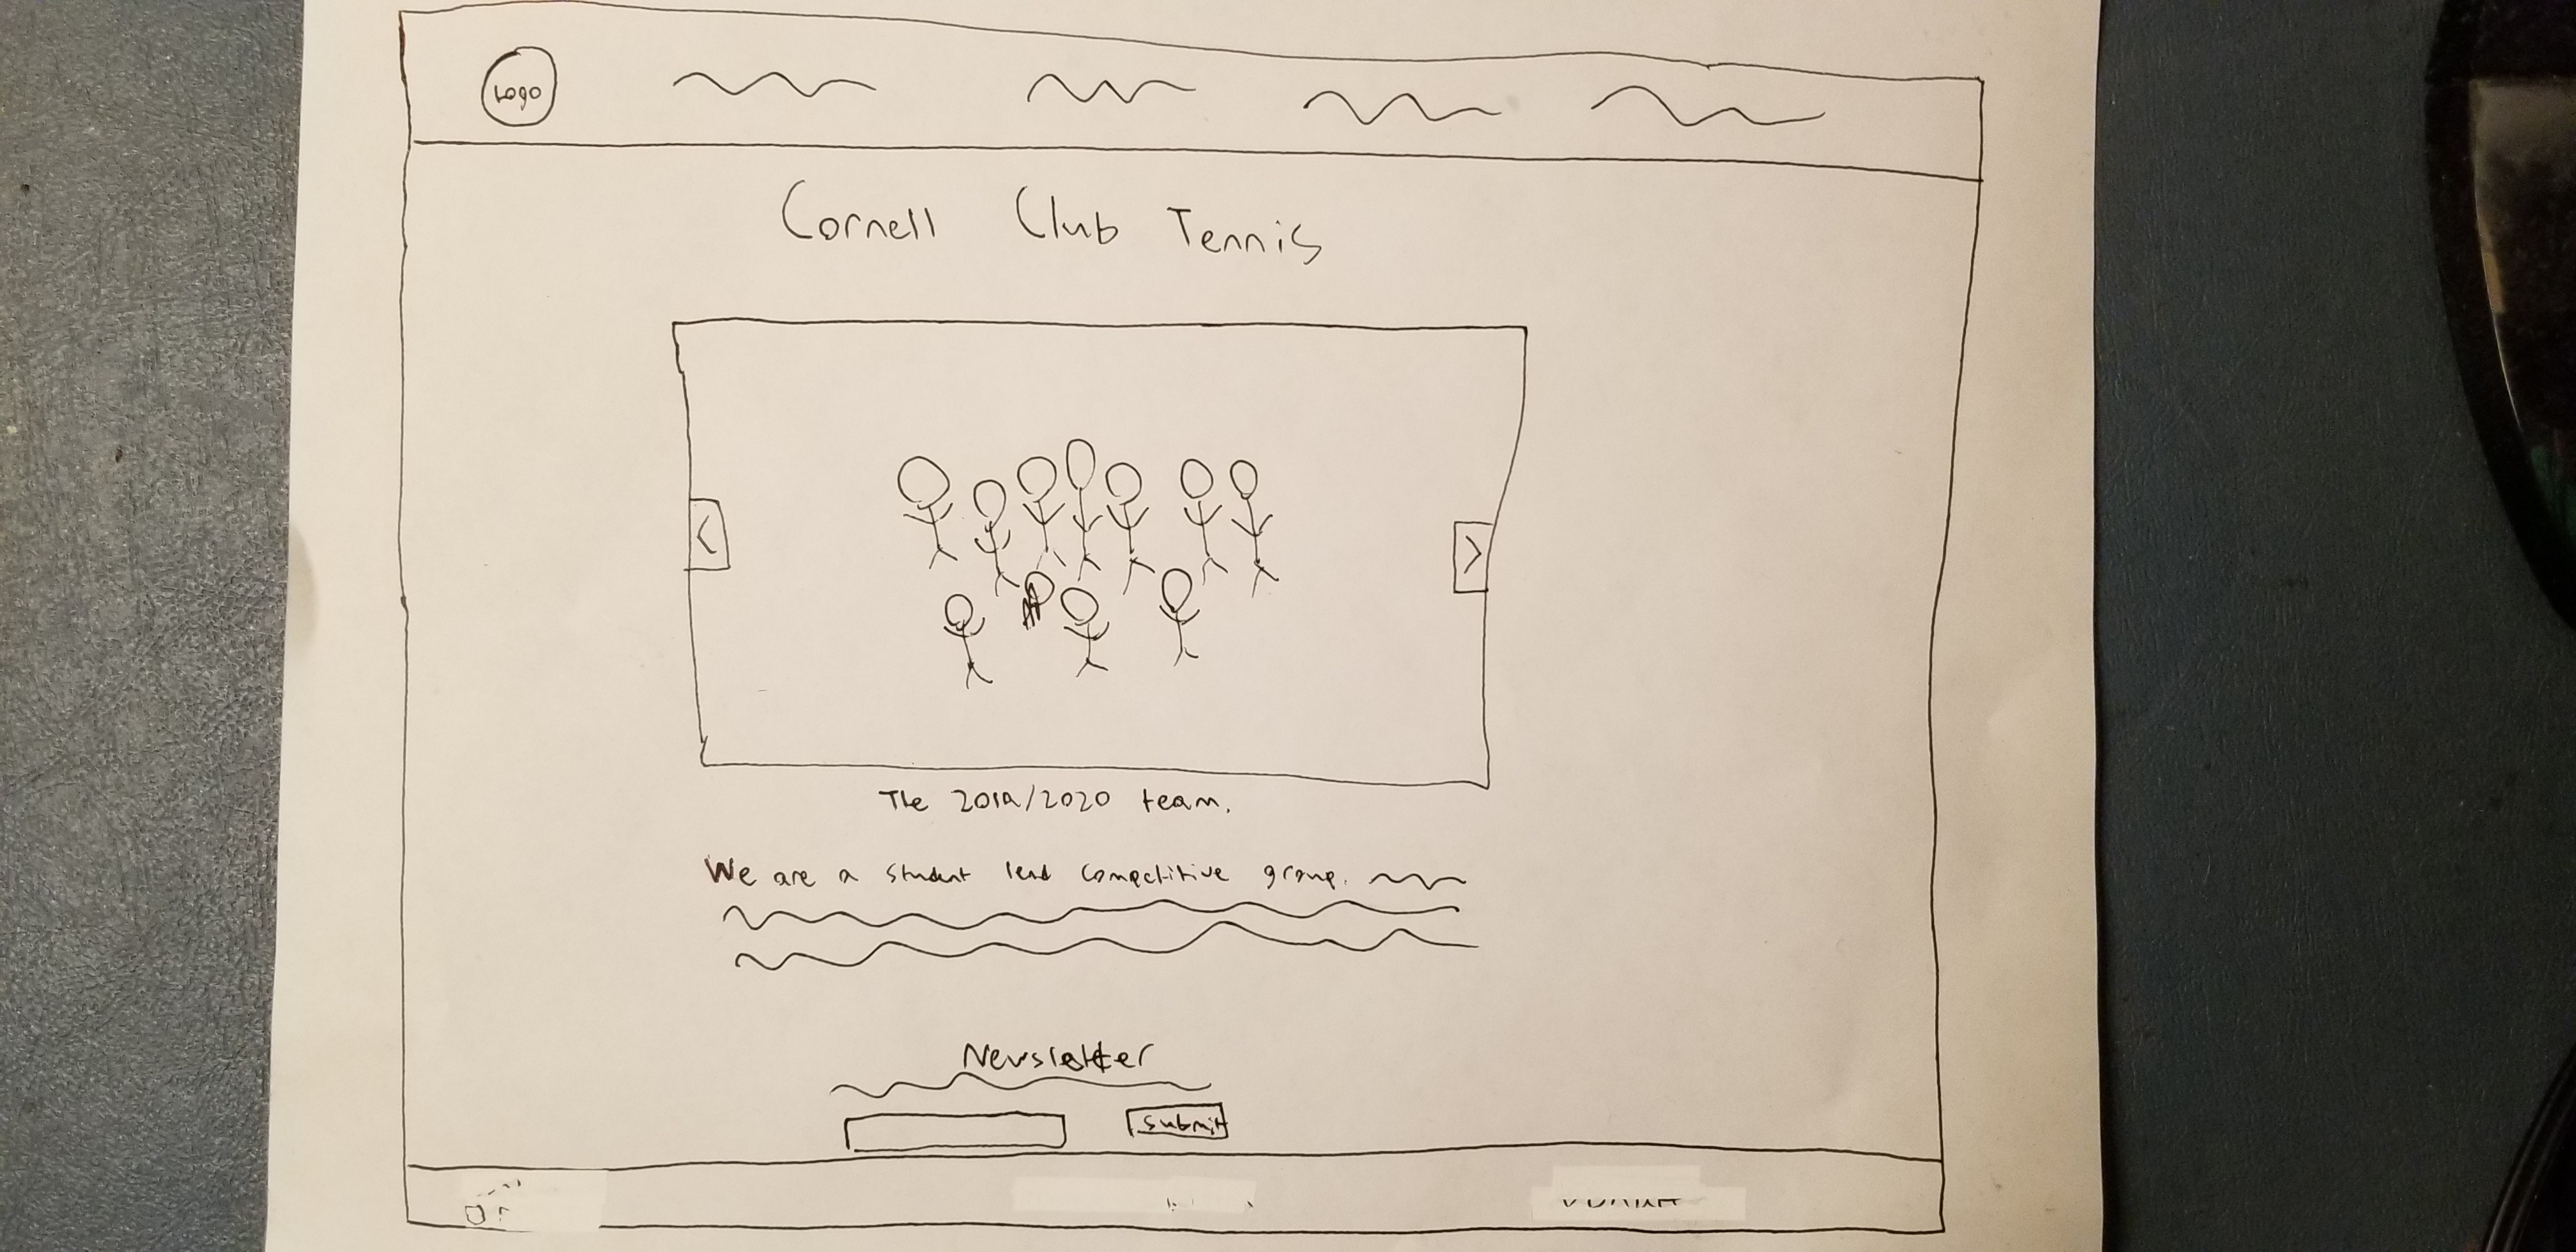 Logo
Cornell Club Tennis
The 2019/2020 team.
We are a student lead competitive group.
Newsletter
submit